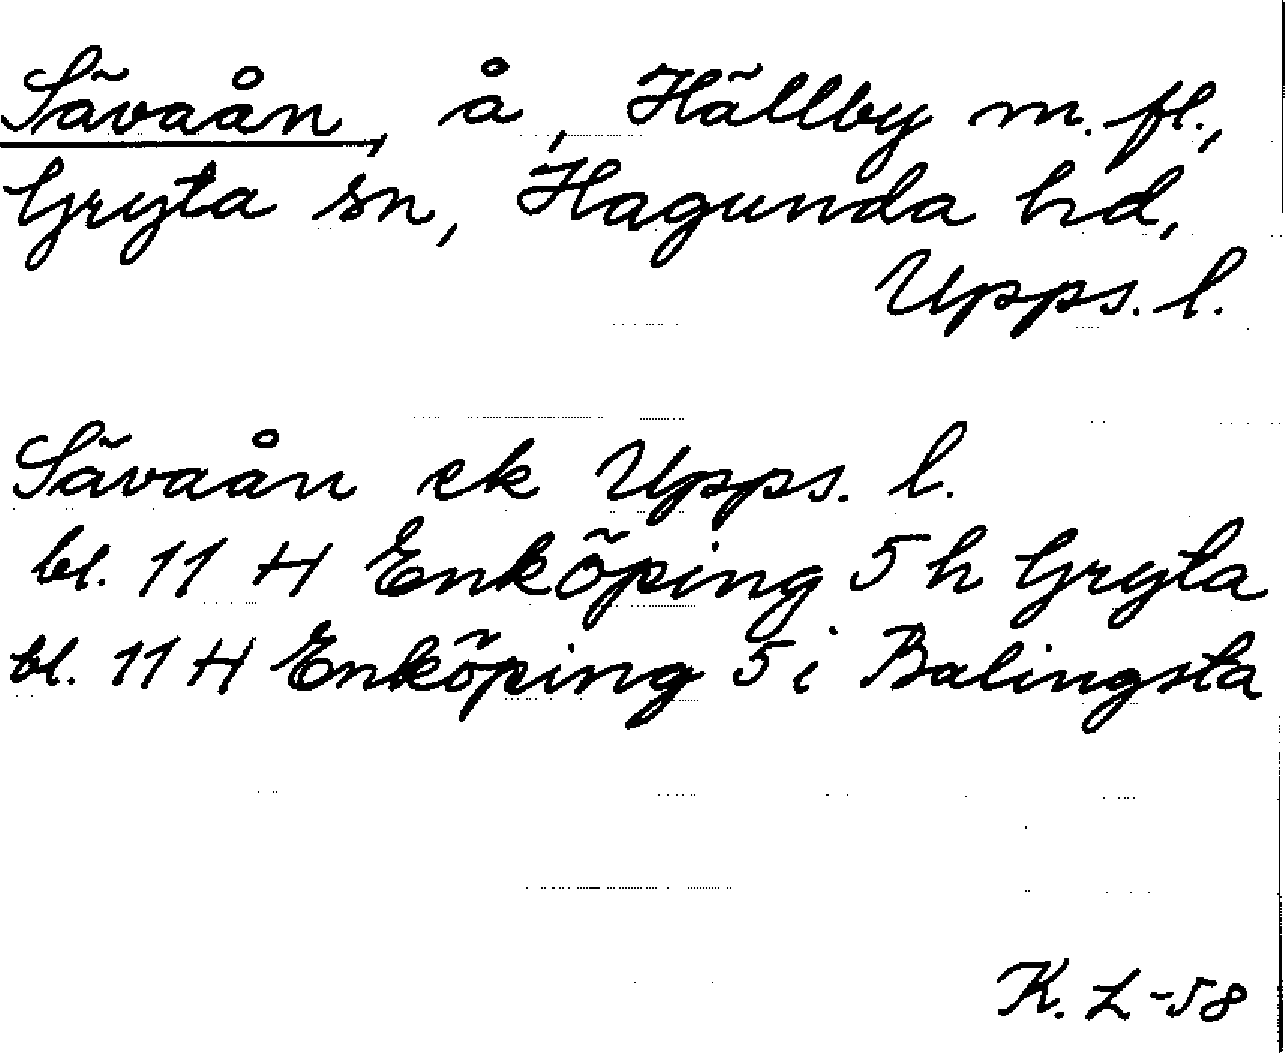 Sävaån, å, Hällby m.fl.,
Gryta sn, Hagunda hd,
Upps. l.
Sävaån ek Upps. l.
bl. 11 H Enköping 5 h Gryta
bl. 11 H Enköping 5 i Balingsta
K. L -58